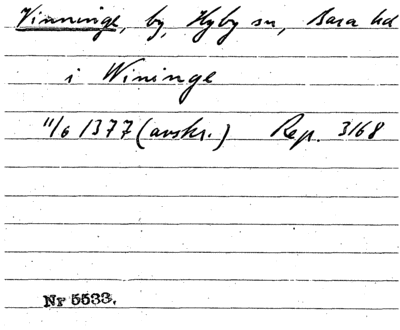 Vinninge, by, Hyby sn, Bara hd
i Wininge
11/6 1377 (avskr.) Rep. 3168
Nr 5533.